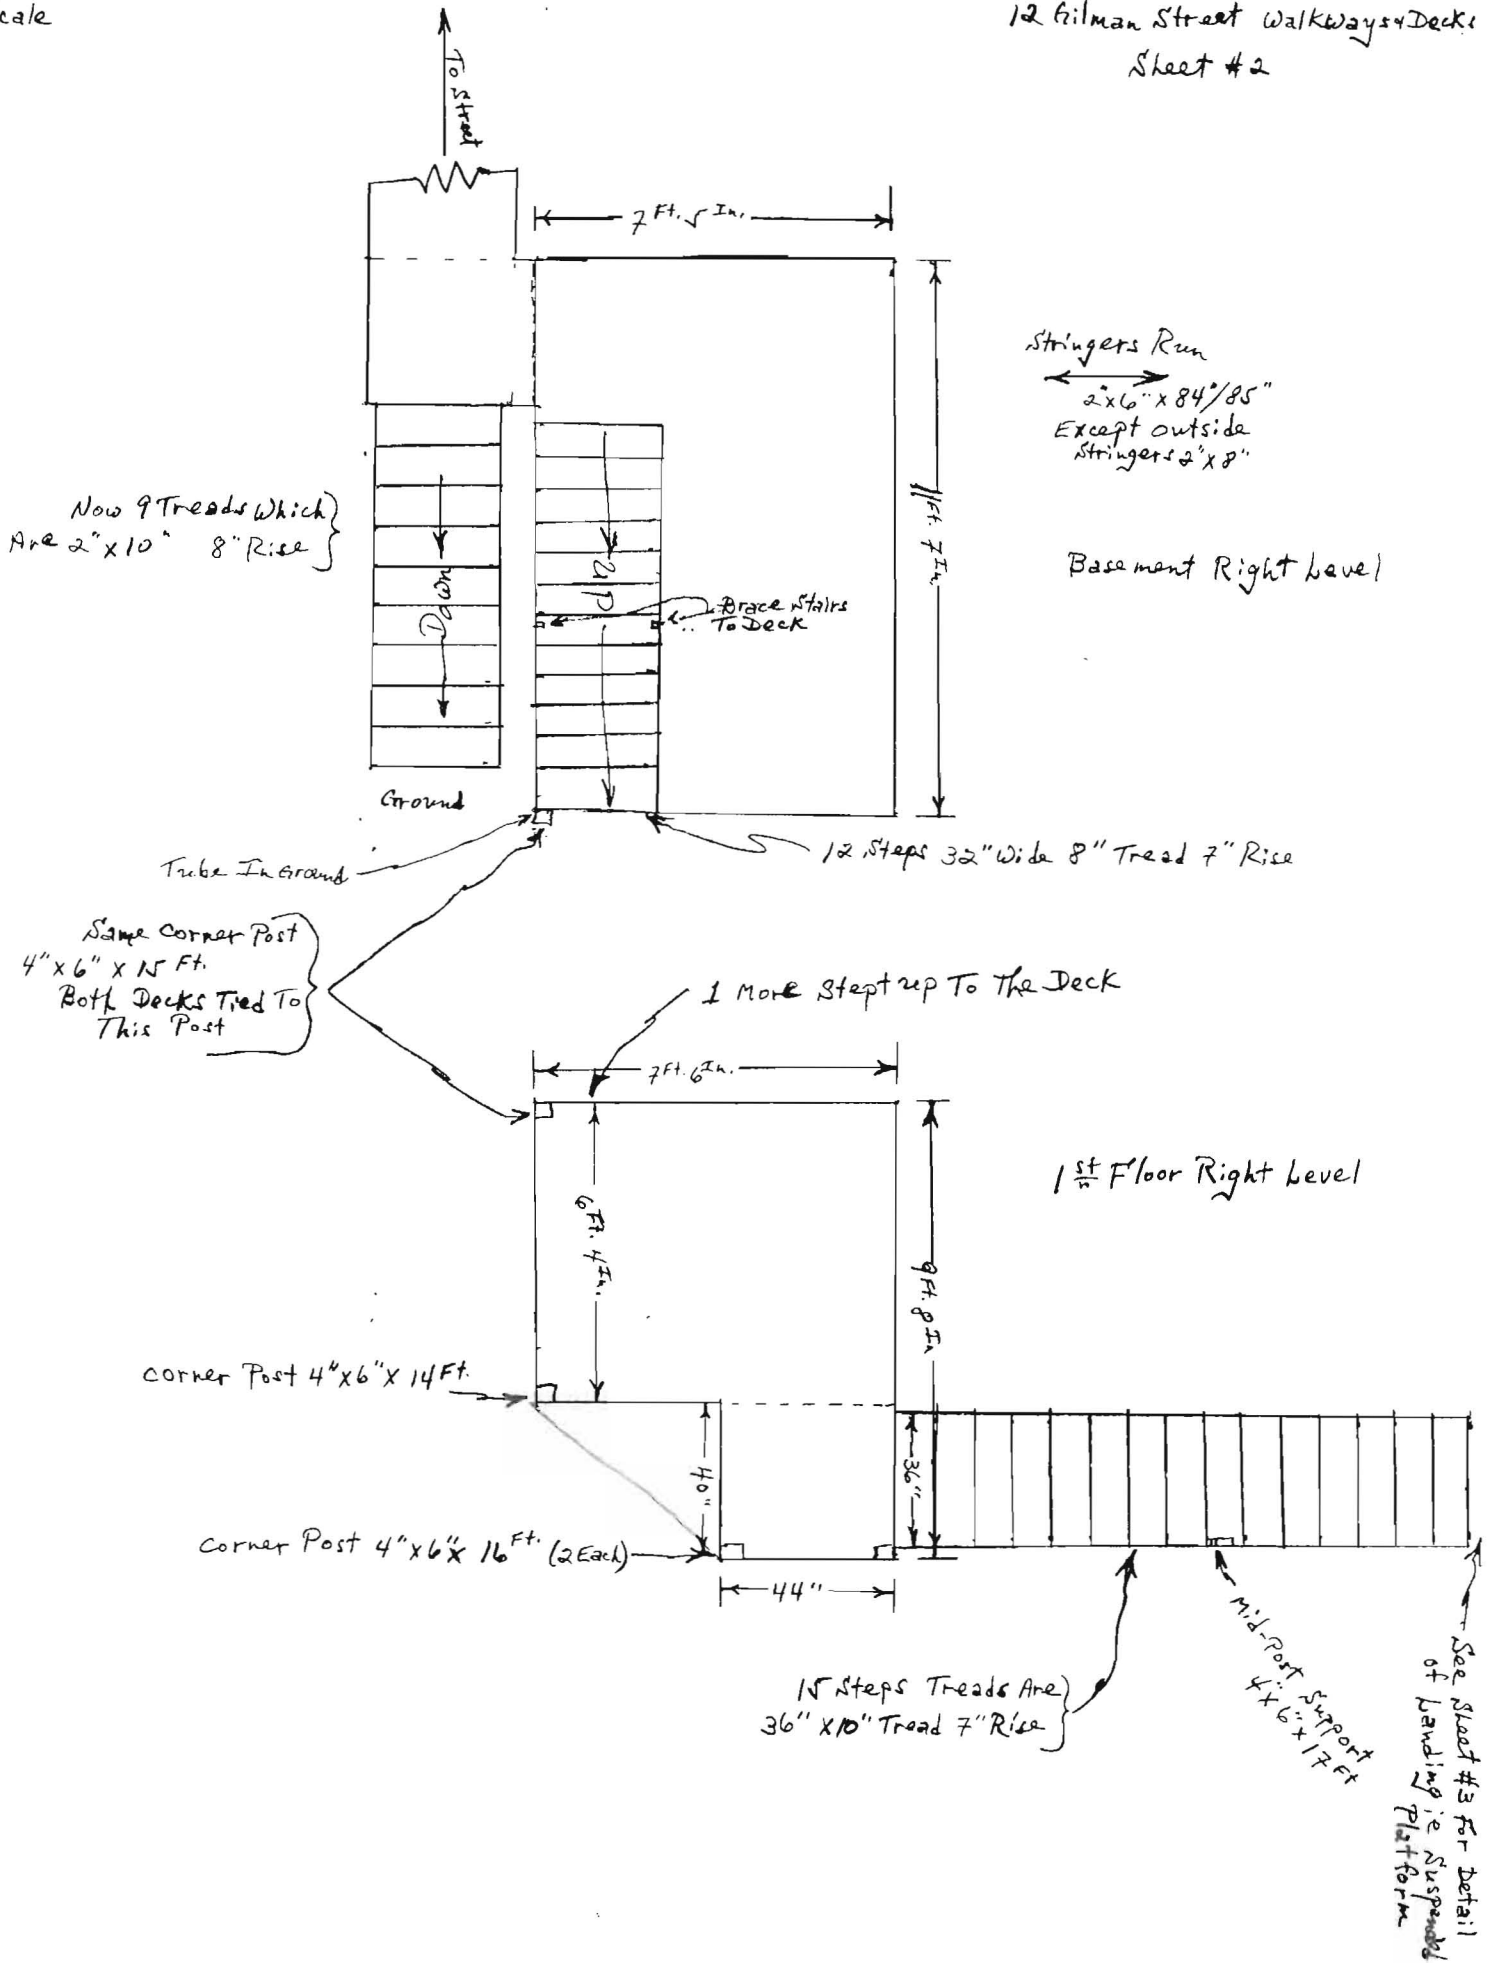 cale
12 Gilman Street Walkways & Decks
Sheet #2
To Street
7 Ft. 5 In.
Stringers Run
2"x6" x 84"/85"
Except outside
Stringers 2"x8"
11 Ft. 7 In.
Now 9 Treads Which
Are 2"x10" 8" Rise
Down
Up
Basement Right Level
Brace Stairs
To Deck
Ground
Tube In Ground
12 Steps 32" Wide 8" Tread 7" Rise
Same Corner Post
4"x6" x 15 Ft.
Both Decks Tied To
This Post
1 More Stept up To The Deck
7 Ft. 6 In.
6 Ft. 4 In.
9 Ft. 8 In
1st Floor Right Level
Corner Post 4"x6"x 14 Ft.
40"
36"
Corner Post 4"x6"x 16 Ft. (2 Each)
44"
15 Steps Treads Are
36" x10" Tread 7" Rise
Mid-Post Support
4"x6"x17 Ft
See Sheet #3 For Detail
of Landing ie Suspended
Platform